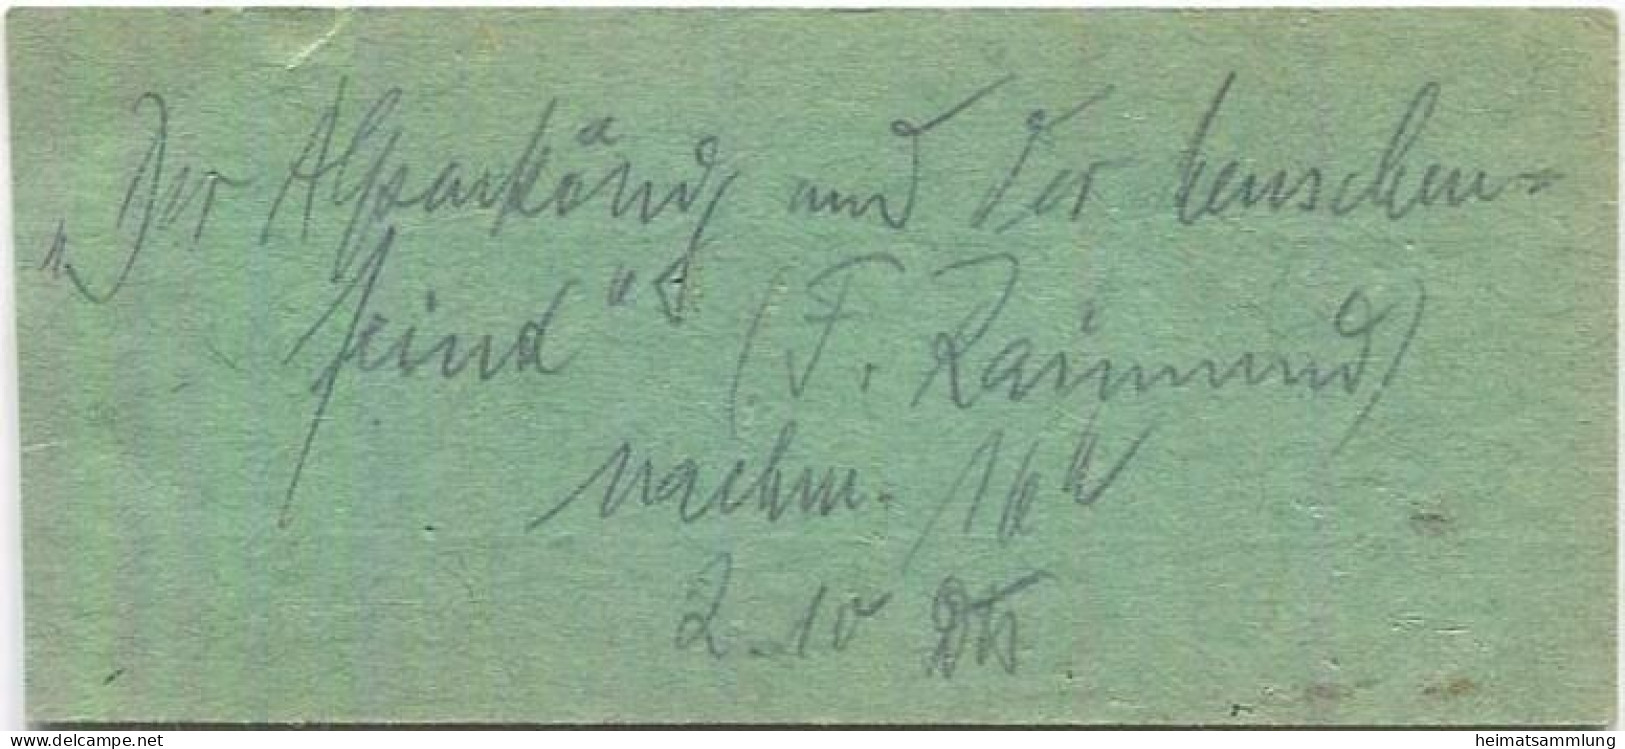 „Der Alpenkönig und der Menschen=
feind" (F. Raimund)
nachm. 16 h
2.10 DM
www.delcampe.net
heimatsammlung